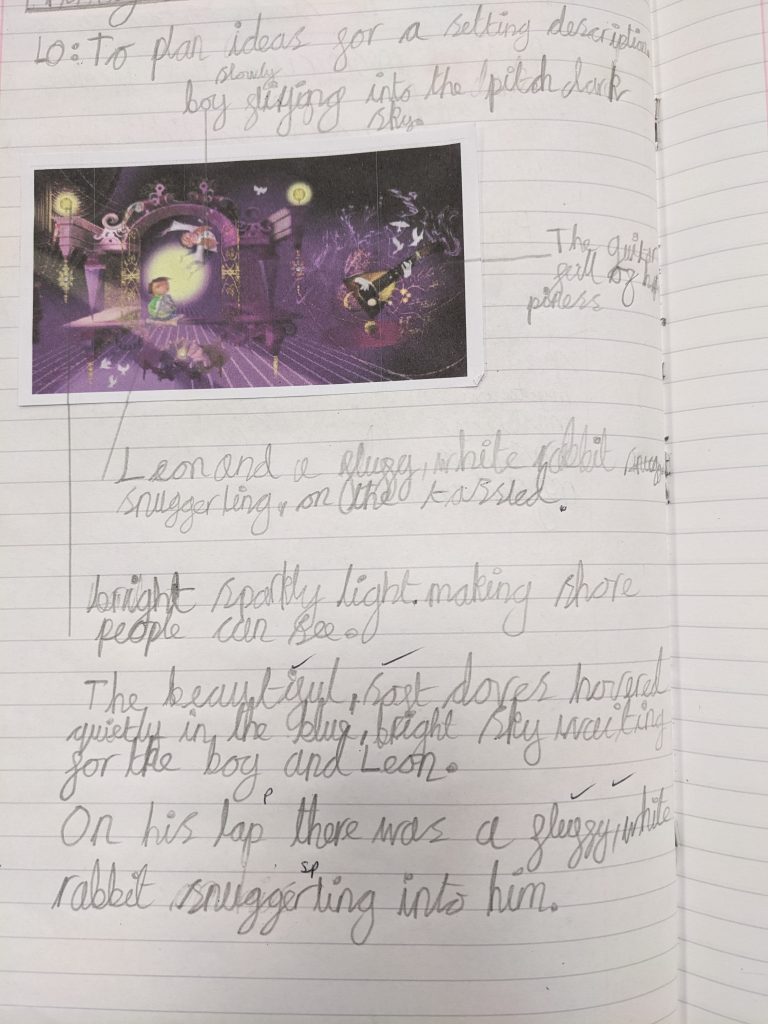 LO: To plan ideas for a setting description
slowly
boy fliying into the pitch dark
sky.
The guitar
full of ha
piness
Leon and a fluffy, white rabbit
snuggerling, on the tassled.
bright sparkly light. making shore
people can see.
The beautiful, soft doves hovered
quietly in the blue, bright sky waiting
for the boy and Leon.
p
On his lap there was a fluffy, white
sp
rabbit snuggerling into him.